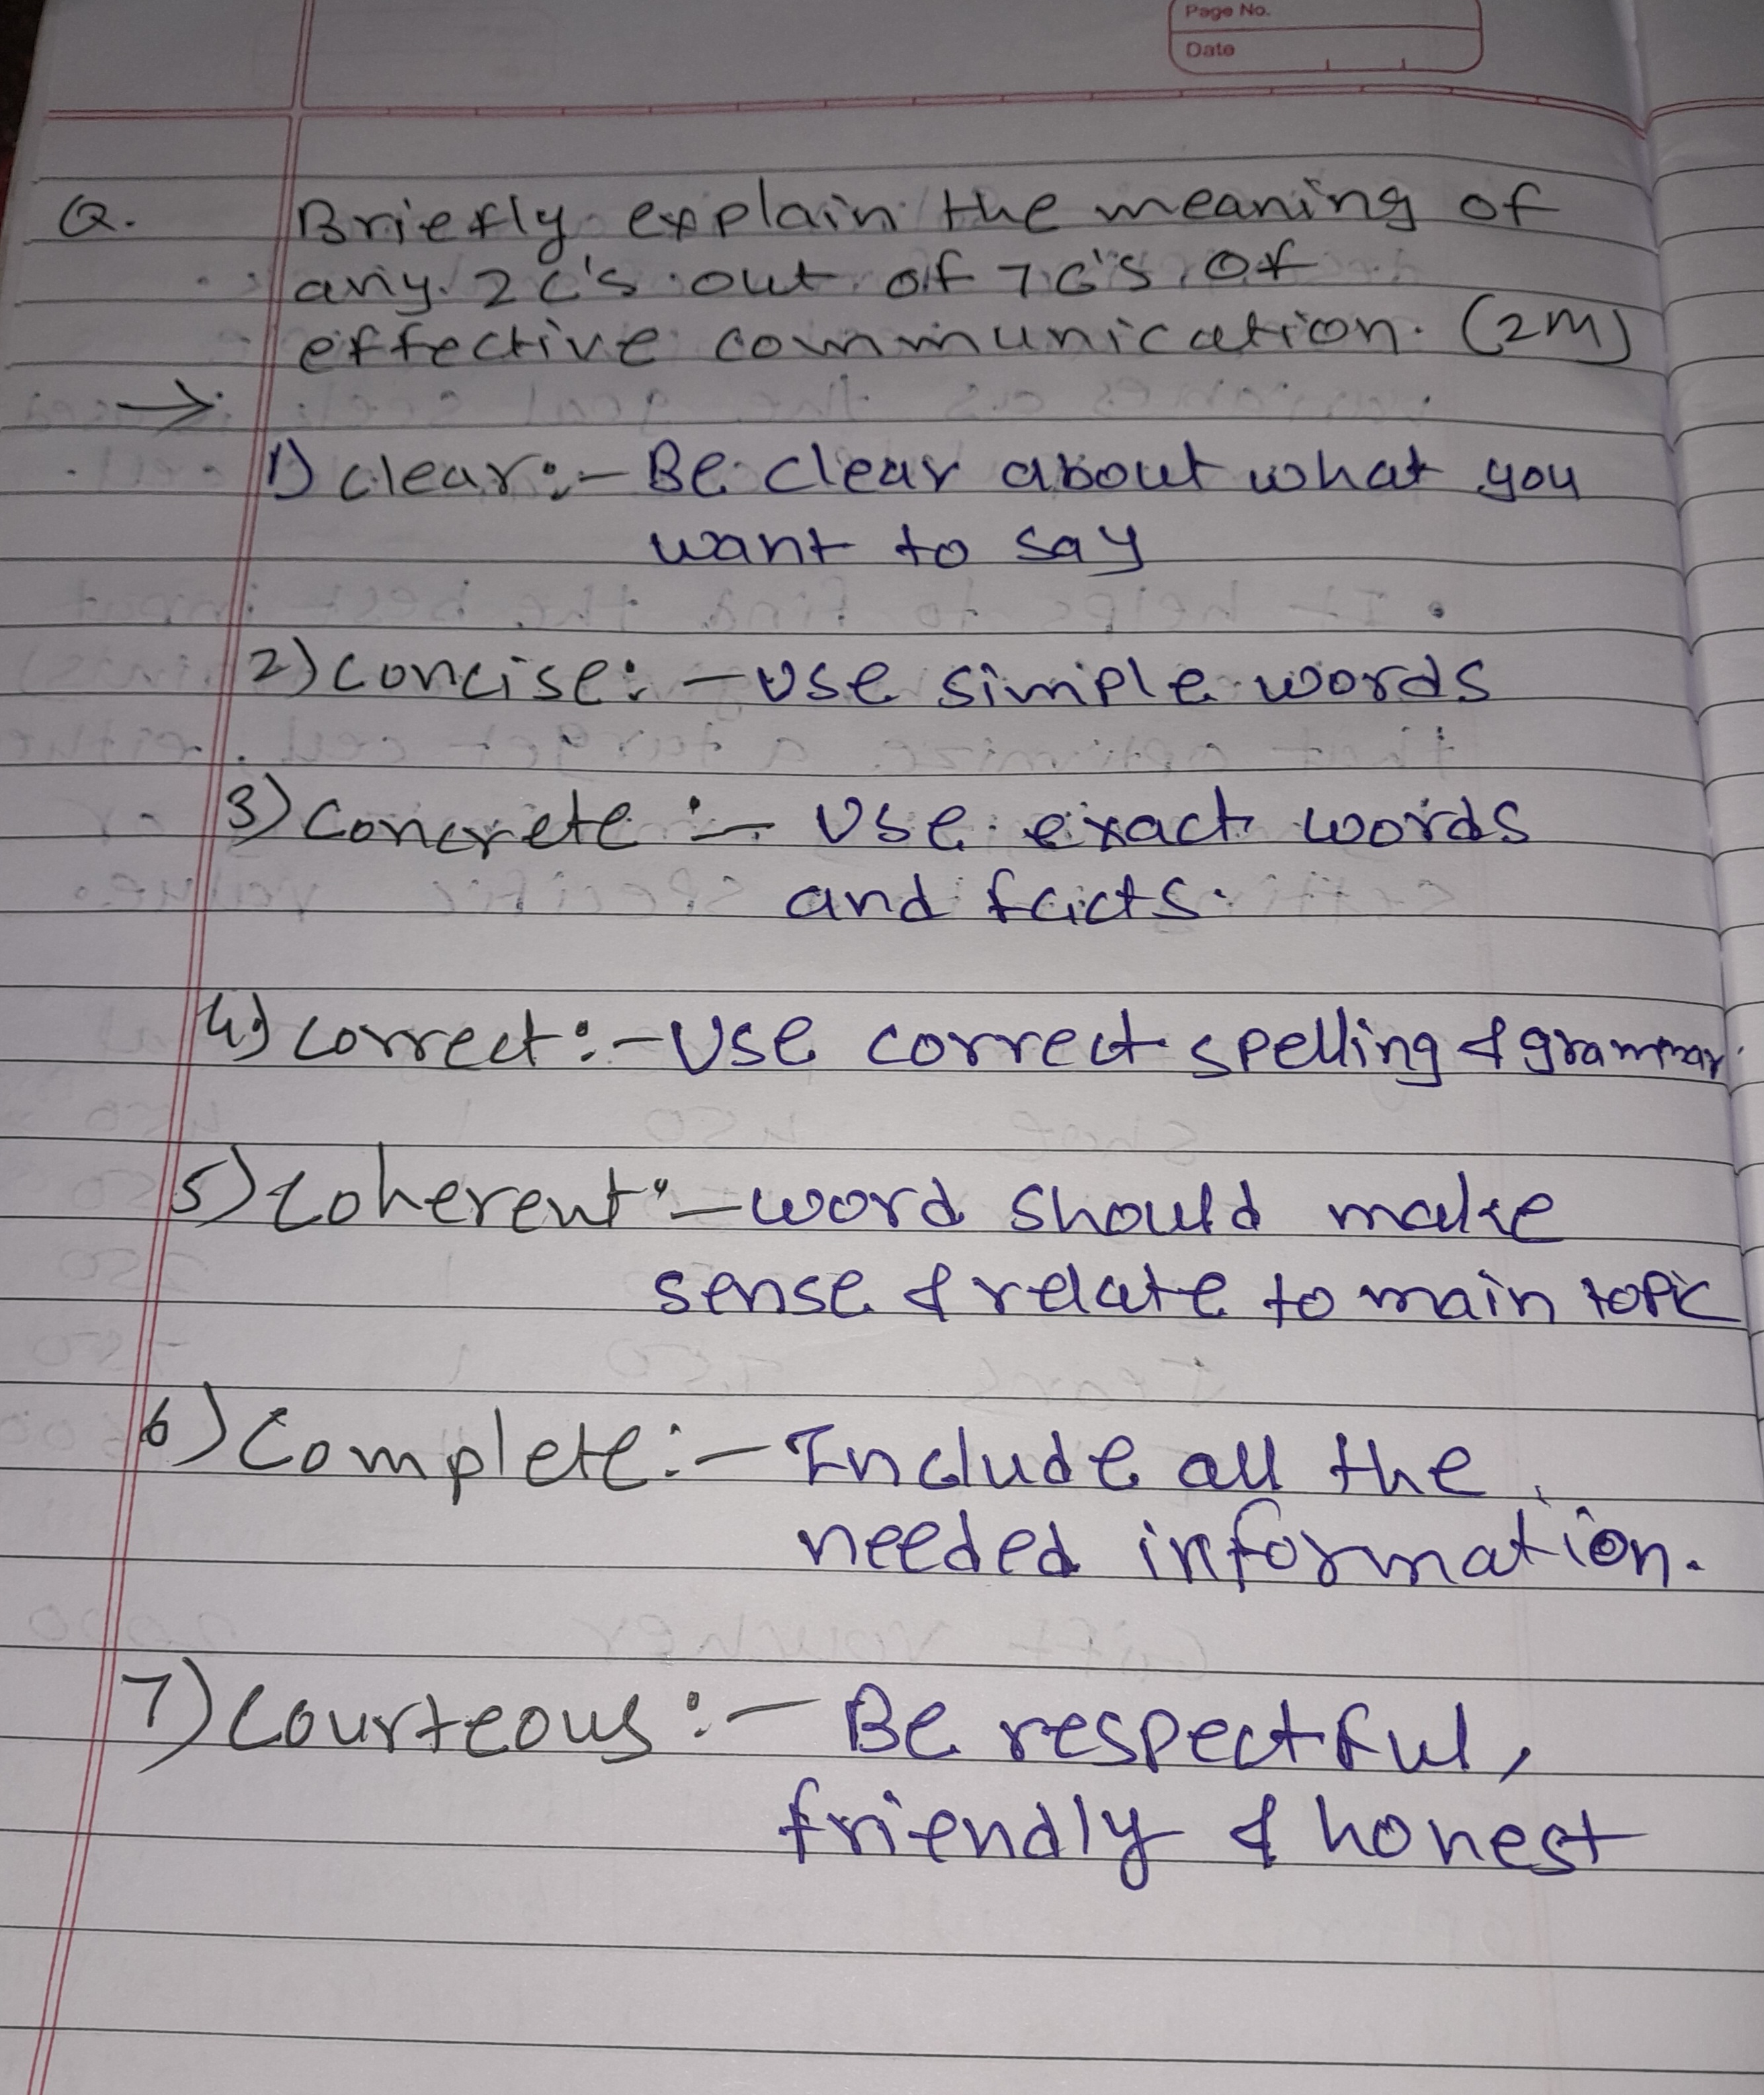 Page No.
Date
Q. Briefly explain the meaning of
any 2 C's out of 7 C's of
effective communication. (2M)
→
1) clear:- Be clear about what you
want to say
2) concise:- Use simple words
3) Concrete:- Use exact words
and facts.
4) correct:- Use correct spelling & grammar.
5) Coherent:- word should make
sense & relate to main topic
6) Complete:- Include all the
needed information.
7) Courteous:- Be respectful,
friendly & honest